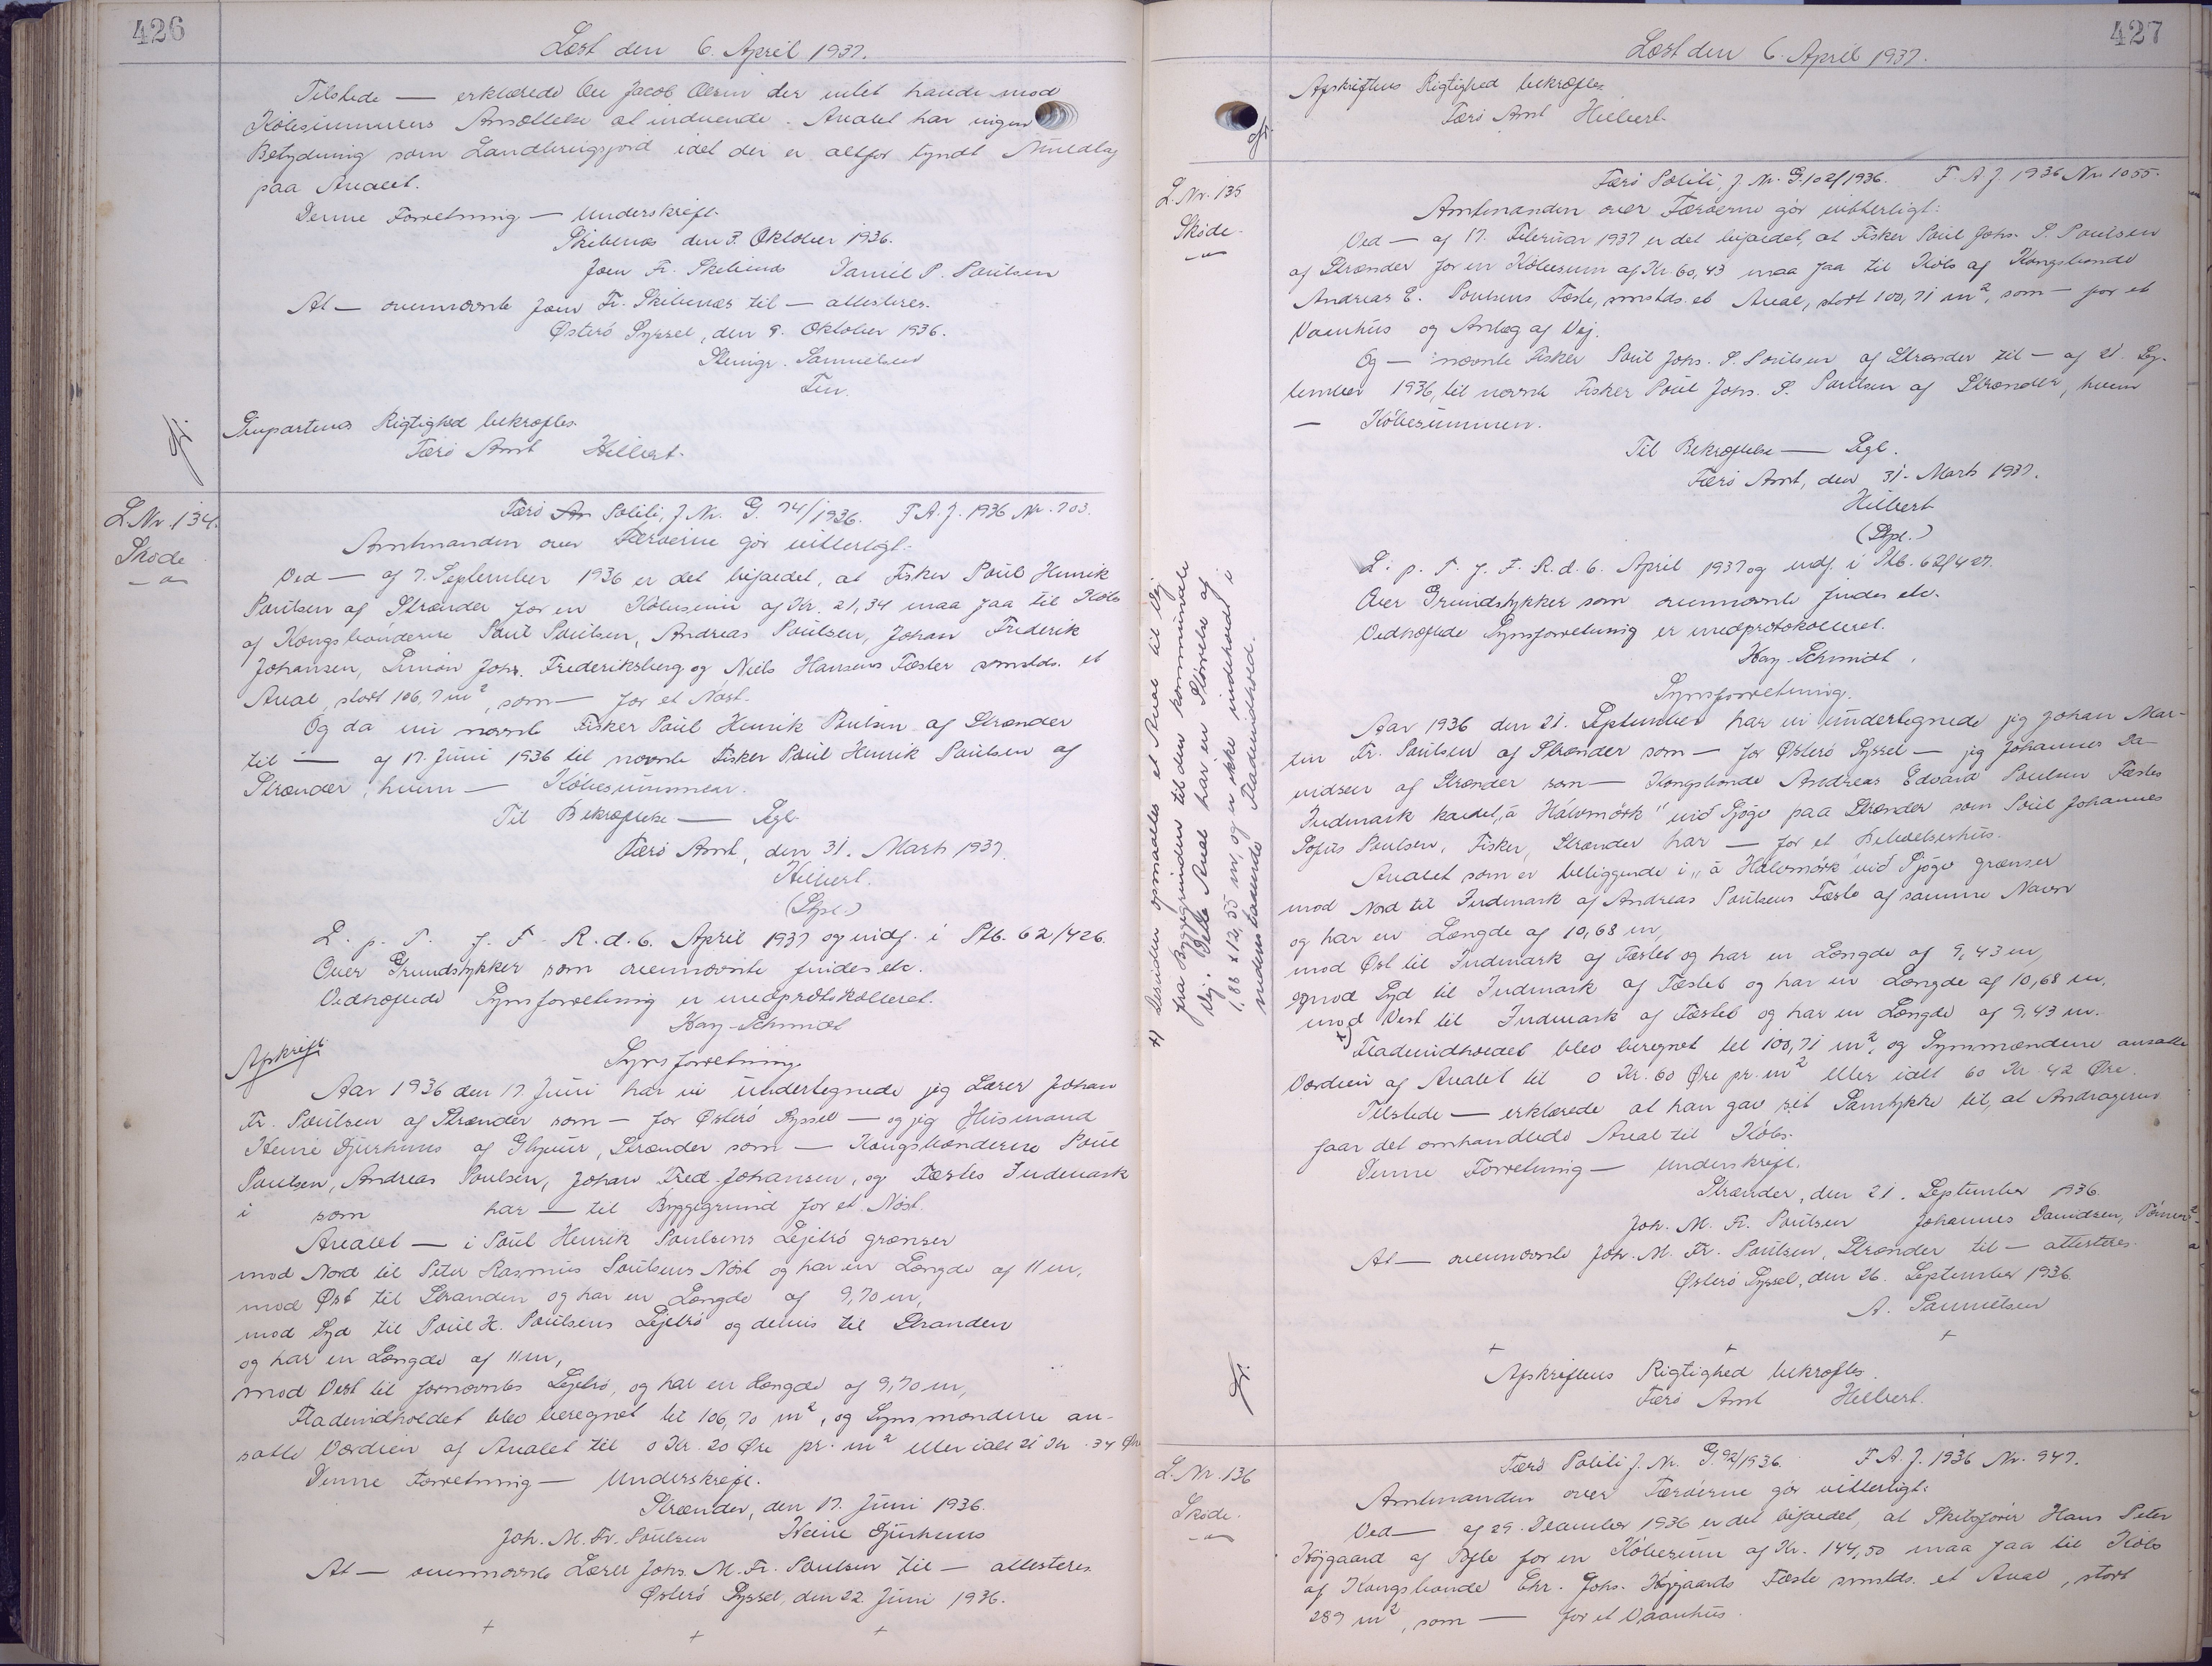 426
Læst den 6. April 1937.
Tilstede — erklærede Ole Jacob Olsen der intet havde mod
Købesummens Ansættelse at indvende. Arealet har ingen
Betydning som Landbrugsjord idet der er altfor tyndt Muldlag
paa Arealet.
Denne Forretning — Underskrift.
Skibenæs den 3. Oktober 1936.
Joen Fr. Skibenæs Daniel P. Poulsen
At — ovennævnte Joen Fr. Skibenæs til — attesteres.
Østerø Syssel, den 9. Oktober 1936.
Samuelsen
Fm.
Genpartens Rigtighed bekræftes.
Færø Amt Hilbert.
L. Nr. 134.
Skøde
Færø Politi, J. Nr. G. 74/1936. F. A. J. 1936 Nr. 703.
Amtmanden over Færøerne gör vitterligt:
Ved — af 7. September 1936 er det bifaldet, at Fisker Poul Henrik
Poulsen af Strænder for en Købesum af Kr. 21,34 maa faa til Købs
af Kongsbønderne Poul Poulsen, Andreas Poulsen, Johan Frederik
Johansen, Simon Johs. Frederiksberg og Niels Hansens Fæster smstds. et
Areal, stort 106,7 m², som — for et Nøst.
Og da nu nævnte Fisker Poul Henrik Poulsen af Strænder
til — af 17. Juni 1936 til nævnte Fisker Poul Henrik Poulsen af
Strænder, hvem — Købesummen.
Til Bekræftelse — Sgl.
Færø Amt, den 31. Marts 1937.
Hilbert.
(Stpl.)
L. p. T. f. F. R. d. 6. April 1937 og indf. i Ptb. 62/426.
Over Grundstykker som ovennævnte findes etc.
Vedhæftede Synsforretning er medprotokolleret.
Kay-Schmidt
Afskrift
Synsforretning
Aar 1936 den 17. Juni har vi undertegnede jeg Lærer Johan
Fr. Poulsen af Strænder som — for Østerø Syssel — og jeg Husmand
Heine Djurhuus af Glyvur, Strænder som — Kongsbønderne Poul
Poulsen, Andreas Poulsen, Johan Fred. Johansen, og Fæstes Indmark
i som har — til Byggegrund for et Nøst.
Arealet — i Poul Henrik Poulsens Lejetrø grænser
mod Nord til Peter Rasmus Poulsens Nøst og har en Længde af 11 m,
mod Øst til Stranden og har en Længde af 9,70 m,
mod Syd til Poul H. Poulsens Lejetrø og delvis til Stranden
og har en Længde af 11 m,
mod Vest til fornævntes Lejetrø, og har en Længde af 9,70 m,
Fladeindholdet blev beregnet til 106,70 m², og Synsmændene an-
satte Værdien af Arealet til 0 Kr. 20 Øre pr. m² eller ialt 21 Kr. 34 Øre
Denne Forretning — Underskrift.
Strænder, den 17. Juni 1936.
Joh. M. Fr. Poulsen Heine Djurhuus
At — ovennævnte Lærer Johs. M. Fr. Poulsen til — attesteres.
Østerø Syssel, den 22. Juni 1936.
+ + +
427
Læst den 6. April 1937.
Afskriftens Rigtighed bekræftes
Færø Amt Hilbert.
L. Nr. 135
Skøde.
Færø Politi, J. Nr. G. 102/1936. F. A. J. 1936 Nr. 1055.
Amtmanden over Færøerne gör vitterligt:
Ved — af 17. Februar 1937 er det bifaldet, at Fisker Poul Johs. S. Poulsen
af Strænder for en Købesum af Kr. 60,43 maa faa til Købs af Kongsbonde
Andreas E. Poulsens Fæste, smstds. et Areal, stort 100,71 m², som — for et
Vaanhus og Anlæg af Vej.
Og — nævnte Fisker Poul Johs. S. Poulsen af Strænder til — af 21. Sep-
tember 1936, til nævnte Fisker Poul Johs. S. Poulsen af Strænder, hvem
— Købesummen.
Til Bekræftelse — Sgl.
Færø Amt, den 31. Marts 1937.
Hilbert
(Stpl.)
L. p. T. f. F. R. d. 6. April 1937 og indf. i Ptb. 62/427.
Over Grundstykker som ovennævnte findes etc.
Vedhæftede Synsforretning er medprotokolleret.
Kay-Schmidt
Synsforretning.
Aar 1936 den 21. September har vi undertegnede jeg Johan Mar-
tin Fr. Poulsen af Strænder som — for Østerø Syssel — jeg Johannes Da-
vidsen af Strænder som — Kongsbonde Andreas Edvard Poulsen Fæstes
Indmark kaldet „á Hálvmörk" við Gjógv paa Strænder som Poul Johannes
Sofus Poulsen, Fisker, Strænder har — for et Beboelseshus.
Arealet som er beliggende i „á Hálvmörk" við Gjógv grænser
mod Nord til Indmark af Andreas Poulsens Fæste af samme Navn
og har en Længde af 10,68 m,
mod Øst til Indmark af Fæstet og har en Længde af 9,43 m,
mod Syd til Indmark af Fæstet og har en Længde af 10,68 m,
mod Vest til Indmark af Fæstet og har en Længde af 9,43 m.
+) Fladeindholdet blev beregnet til 100,71 m², og Synsmændene ansatte
Værdien af Arealet til 0 Kr. 60 Øre pr. m² eller ialt 60 Kr. 42 Øre.
Tilstede — erklærede at han gav sit Samtykke til, at Andrageren
faar det omhandlede Areal til Købs.
Denne Forretning — Underskrift.
Strænder, den 21. September 1936.
Joh. M. Fr. Poulsen Johannes Davidsen,
At — ovennævnte Joh. M. Fr. Poulsen, Strænder til — attesteres.
Østerø Syssel, den 26. September 1936.
A. Samuelsen
+ + +
Afskriftens Rigtighed bekræftes.
Færø Amt Hilbert.
+) Desuden opmaaltes et Areal til Vej
fra Byggegrunden til den kommunale
Vej. Dette Areal har en Størrelse af
1,88 x 12,55 m, og er ikke indeholdt i
nedenstaaende Fladeindhold.
L. Nr. 136
Skøde.
Færø Politi J. Nr. G. 92/1936. F. A. J. 1936 Nr. 947.
Amtmanden over Færøerne gör vitterligt:
Ved — af 29. December 1936 er det bifaldet, at Skibsfører Hans Peter
Højgaard af Tofte for en Købesum af Kr. 144,50 maa faa til Købs
af Kongsbonde Chr. Johs. Højgaards Fæste smstds. et Areal, stort
289 m², som — for et Vaanhus.